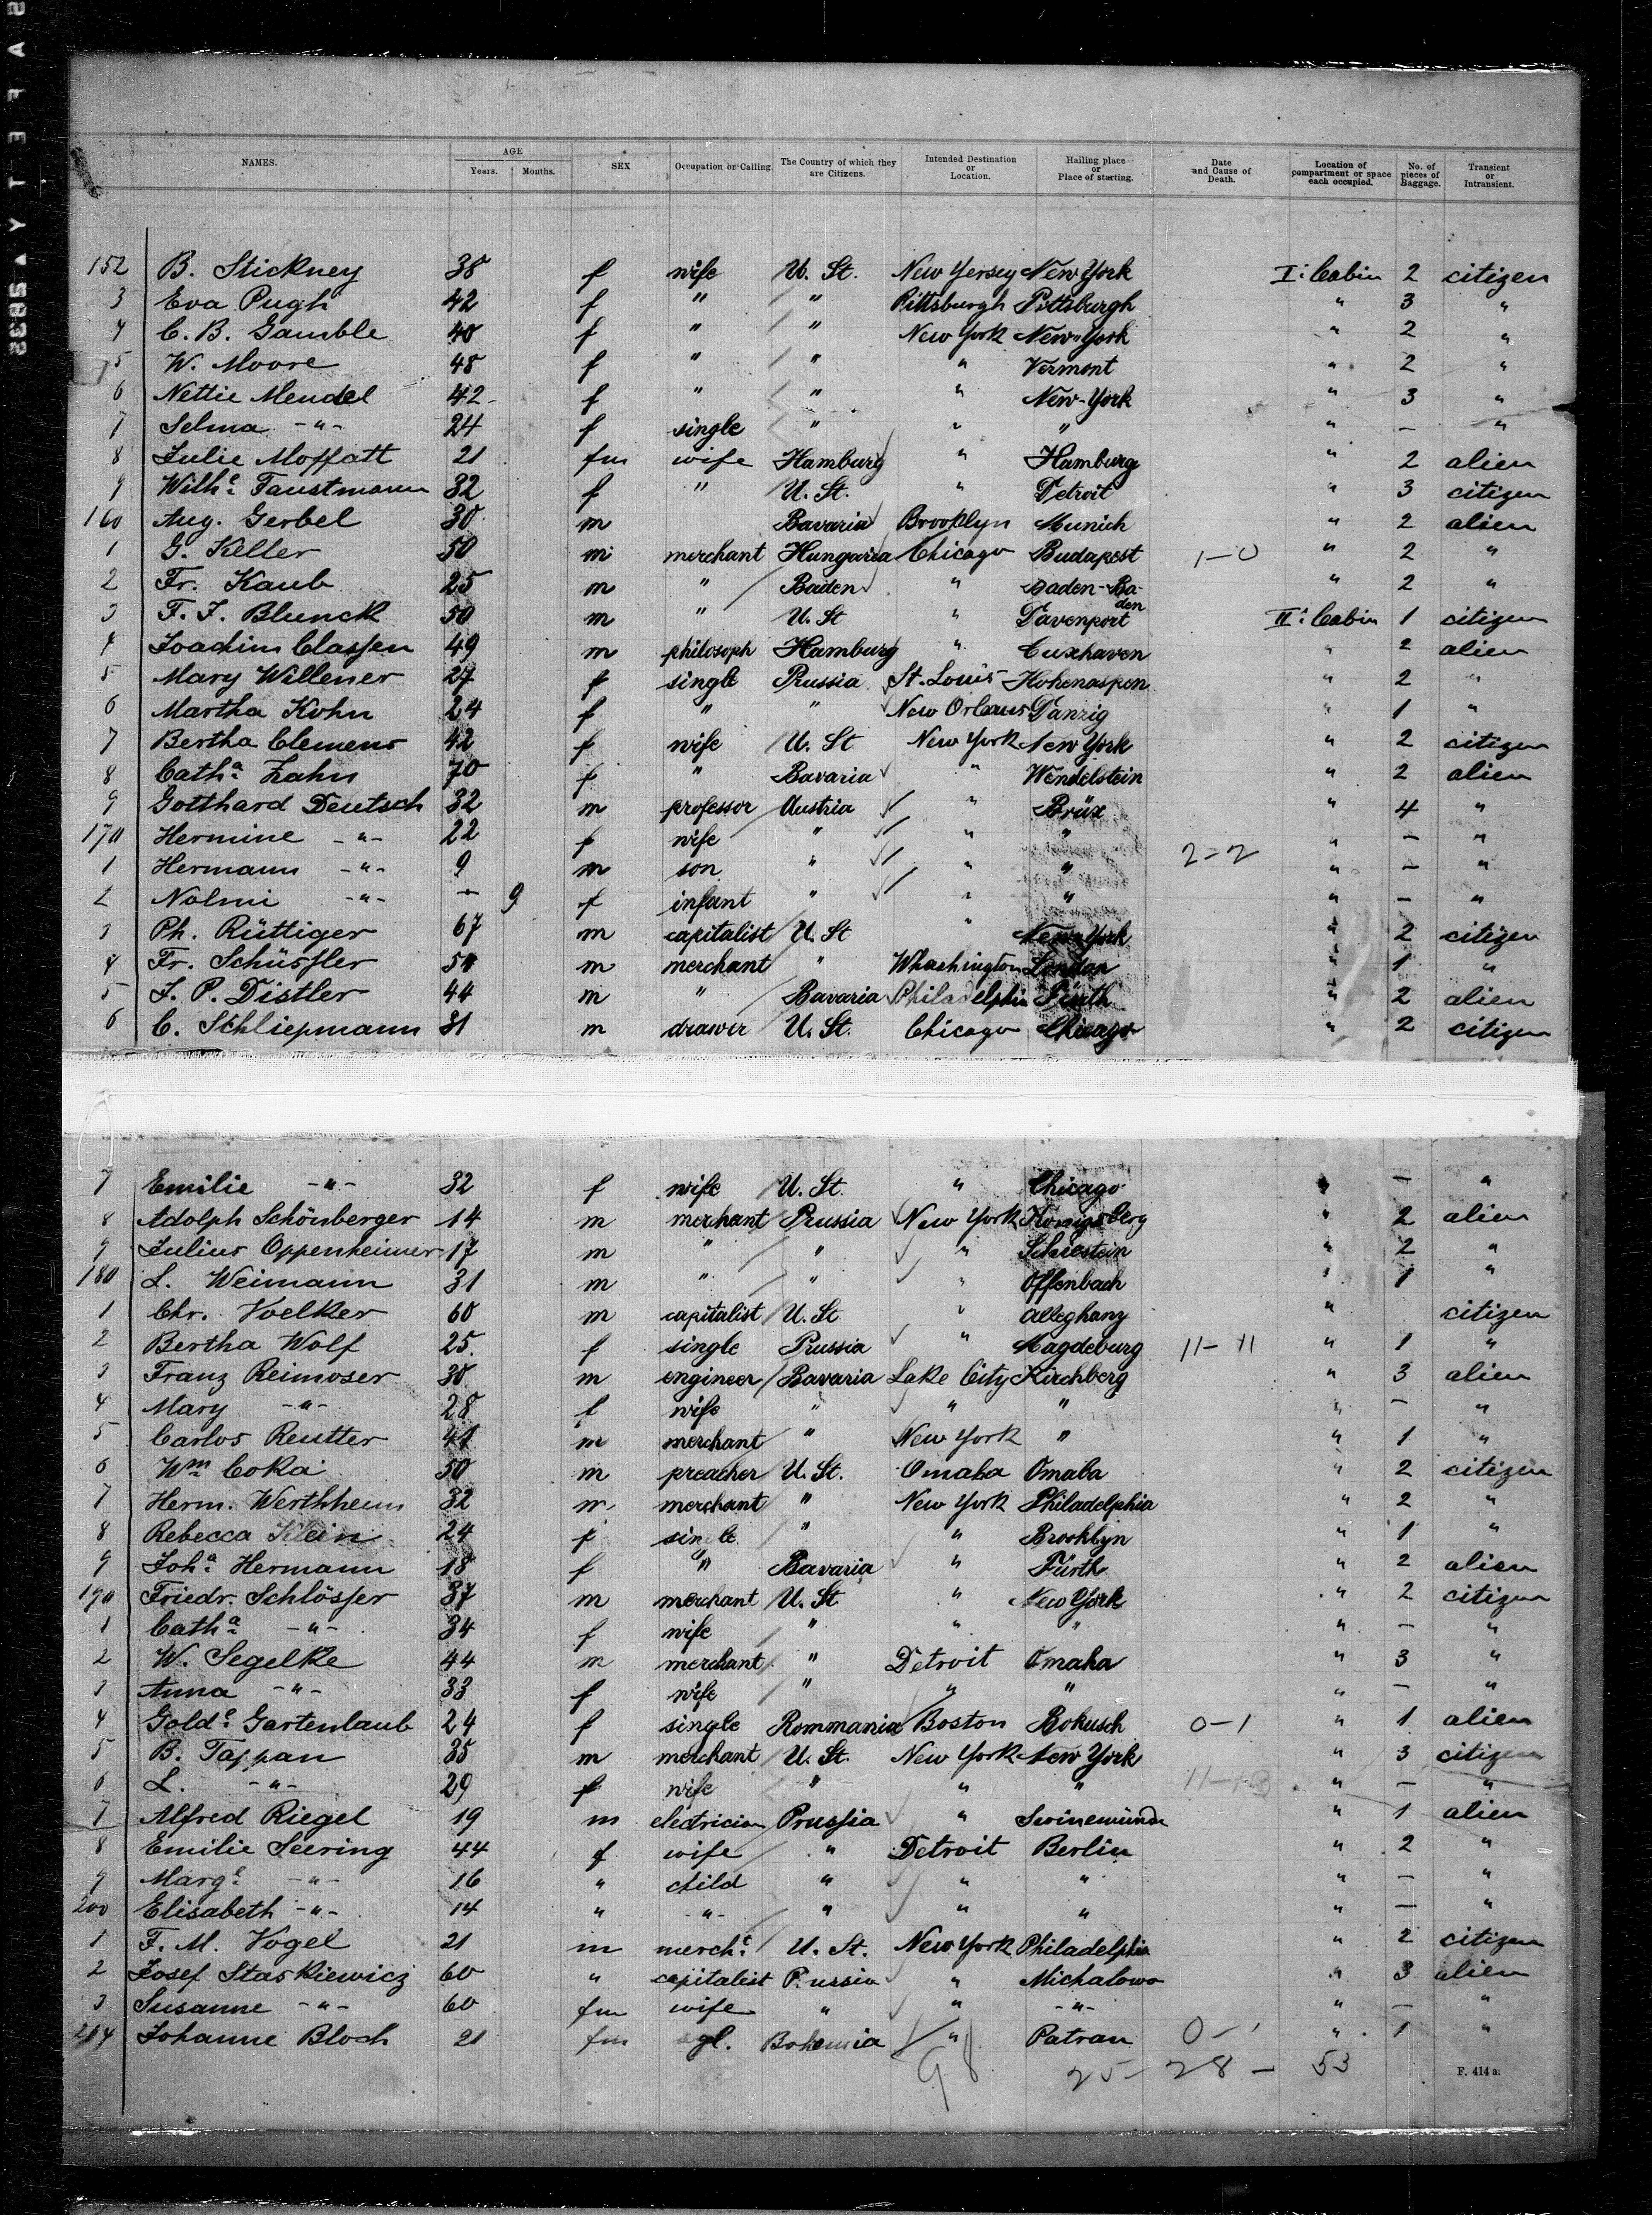 SAFETY ▲ 5883
NAMES. AGE Years. Months. SEX Occupation or Calling. The Country of which they are Citizens. Intended Destination or Location. Hailing place or Place of starting. Date and Cause of Death. Location of compartment or space each occupied. No. of pieces of Baggage. Transient or Intransient.
152 B. Stickney 38 f wife U. St. New Yersey New York I: Cabin 2 citizen
3 Eva Pugh 42 f " " Pittsburgh Pittsburgh " 3 "
4 C. B. Gamble 40 f " " New York New-York " 2 "
5 W. Moore 48 f " " " Vermont " 2 "
6 Nettie Mendel 42 f " " " New-York " 3 "
7 Selma -"- 24 f single " " " " – "
8 Julie Moffatt 21 fm wife Hamburg " Hamburg " 2 alien
9 Wilhe Faustmann 32 f " U. St. " Detroit " 3 citizen
160 Aug. Gerbel 30 m Bavaria Brooklyn Munich " 2 alien
1 G. Keller 50 m merchant Hungaria Chicago Budapest 1-0 " 2 "
2 Fr. Kaub 25 m " Baden " Baden-Baden " 2 "
3 F. J. Blunck 50 m " U. St " Davenport II: Cabin 1 citizen
4 Joachim Classen 49 m philosoph Hamburg " Cuxhaven " 2 alien
5 Mary Willener 27 f single Prussia St. Louis Hohenaspen " 2 "
6 Martha Kohn 24 f " " New Orleans Danzig " 1 "
7 Bertha Clemens 42 f wife U. St New York New York " 2 citizen
8 Catha Zahn 70 f " Bavaria " Wendelstein " 2 alien
9 Gotthard Deutsch 32 m professor Austria " Brüx " 4 "
170 Hermine -"- 22 f wife " " " " – "
1 Hermann -"- 9 m son " " " 2-2 " – "
2 Nolmi -"- – 9 f infant " " " " – "
3 Ph. Rüttiger 67 m capitalist U. St " New-York " 2 citizen
4 Fr. Schüssler m merchant " Whashington London " 1 "
5 J. P. Distler 44 m " Bavaria Philadelphia Fürth " 2 alien
6 C. Schliepmann 31 m drawer U. St. Chicago Chicago " 2 citizen
7 Emilie -"- 32 f wife U. St. " Chicago " – "
8 Adolph Schönberger 14 m merchant Prussia New York Königsberg " 2 alien
9 Julius Oppenheimer 17 m " " " Schierstein " 2 "
180 L. Weimann 31 m " " " Offenbach " 1 "
1 Chr. Voelker 60 m capitalist U. St " Alleghany " citizen
2 Bertha Wolf 25. f single Prussia " Magdeburg 11-11 " 1 "
3 Franz Reimoser 30 m engineer Bavaria Lake City Kirchberg " 3 alien
4 Mary -"- 28 f wife " " " " – "
5 Carlos Reutter 41 m merchant " New York " " 1 "
6 Wm Coka 50 m preacher U. St. Omaha Omaha " 2 citizen
7 Herm. Werthheim 32 m merchant " New York Philadelphia " 2 "
8 Rebecca Klein 24 f single " " Brooklyn " 1 "
9 Joha Hermann 18 f " Bavaria " Fürth " 2 alien
190 Friedr. Schlösser 37 m merchant U. St " New York " 2 citizen
1 Catha -"- 34 f wife " " " " – "
2 W. Segelke 44 m merchant " Detroit Omaha " 3 "
3 Anna -"- 33 f wife " " " " – "
4 Golde Gartenlaub 24 f single Rommania Boston Bokusch 0-1 " 1 alien
5 B. Tappan 35 m merchant U. St. New York New York " 3 citizen
6 L. -"- 29 f wife " " " 11-13 " – "
7 Alfred Riegel 19 m electrician Prussia " Swinemünde " 1 alien
8 Emilie Seering 44 f wife " Detroit Berlin " 2 "
9 Marge -"- 16 " child " " " " – "
200 Elisabeth -"- 14 " -"- " " " " – "
1 F. M. Vogel 21 m mercht U. St. New York Philadelphia " 2 citizen
2 Josef Staskiewicz 60 " capitalist Prussia " Michalowo " 3 alien
3 Susanne -"- 60 fm wife " " -"- " – "
204 Johanne Bloch 21 fm sgl. Bohemia " Patran 0-1 " 1 "
98 25- 28 - 53
F. 414 a.